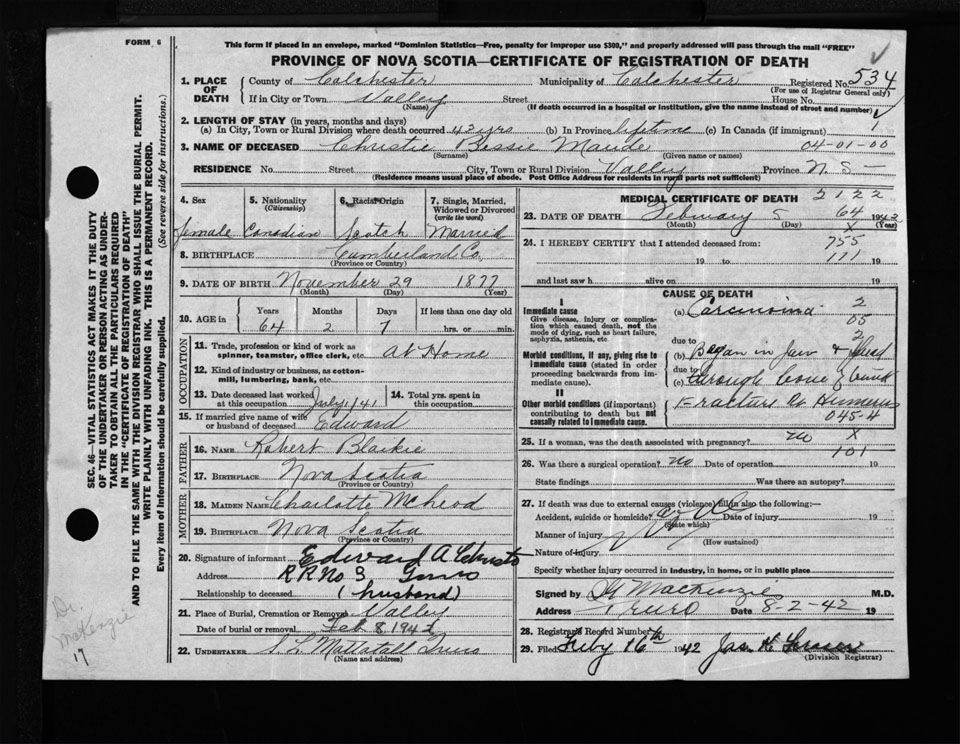 FORM 6
This form if placed in an envelope, marked "Dominion Statistics—Free, penalty for improper use $300," and properly addressed will pass through the mail "FREE"
PROVINCE OF NOVA SCOTIA—CERTIFICATE OF REGISTRATION OF DEATH
1. PLACE OF DEATH County of Colchester Municipality of Colchester Registered No. 534
(For use of Registrar General only)
If in City or Town Valley Street House No.
(Name) (If death occurred in a hospital or institution, give the name instead of street and number)
2. LENGTH OF STAY (in years, months and days)
(a) In City, Town or Rural Division where death occurred 43 yrs (b) In Province lifetime (c) In Canada (if immigrant) 1
3. NAME OF DECEASED Christie Bessie Maude 04-01-00
(Surname) (Given name or names)
RESIDENCE No. Street City, Town or Rural Division Valley Province N.S.
(Residence means usual place of abode. Post Office Address for residents in rural parts not sufficient)
4. Sex 5. Nationality (Citizenship) 6. Racial Origin 7. Single, Married, Widowed or Divorced (write the word)
female Canadian Scotch Married
8. BIRTHPLACE Cumberland Co.
(Province or Country)
9. DATE OF BIRTH November 29 1877
(Month) (Day) (Year)
10. AGE in Years Months Days If less than one day old
64 2 7 hrs. or min.
OCCUPATION
11. Trade, profession or kind of work as spinner, teamster, office clerk, etc. At Home
12. Kind of industry or business, as cotton-mill, lumbering, bank, etc.
13. Date deceased last worked at this occupation July 1/41 14. Total yrs. spent in this occupation
15. If married give name of wife or husband of deceased Edward
FATHER
16. NAME Robert Blaikie
17. BIRTHPLACE Nova Scotia
(Province or Country)
MOTHER
18. MAIDEN NAME Charlotte McLeod
19. BIRTHPLACE Nova Scotia
(Province or Country)
20. Signature of informant Edward A Christie
Address R R No 3 Truro
Relationship to deceased (husband)
21. Place of Burial, Cremation or Removal Valley
Date of burial or removal Feb 8 1942
22. UNDERTAKER Mattatall Truro
(Name and address)
MEDICAL CERTIFICATE OF DEATH 2122
23. DATE OF DEATH February 5 64 1942
(Month) (Day) (Year)
X
24. I HEREBY CERTIFY that I attended deceased from: 755
19 to 111 19
and last saw h alive on 19
CAUSE OF DEATH
I
Immediate cause
Give disease, injury or complication which caused death, not the mode of dying, such as heart failure, asphyxia, asthenia, etc
(a) Carcinoma 2
05
due to 2
Morbid conditions, if any, giving rise to immediate cause (stated in order proceeding backwards from immediate cause).
(b) Began in Jaw &
due to
(c) through bone
II
Other morbid conditions (if important) contributing to death but not causally related to immediate cause.
Fracture Humerus
045-4
25. If a woman, was the death associated with pregnancy? no X
101
26. Was there a surgical operation? no Date of operation 19
State findings Was there an autopsy?
27. If death was due to external causes (violence) fill in also the following:
Accident, suicide or homicide? Date of injury 19
(State which)
Manner of injury
(How sustained)
Nature of injury
Specify whether injury occurred in industry, in home, or in public place
Signed by MacKenzie M.D.
Address Truro Date 8-2-42 19
28. Registrar's Record Number
29. Filed Feby 16th 1942 Jas
(Division Registrar)
SEC. 46—VITAL STATISTICS ACT MAKES IT THE DUTY
OF THE UNDERTAKER OR PERSON ACTING AS UNDER-
TAKER TO OBTAIN ALL THE PARTICULARS REQUIRED
IN THE "CERTIFICATE OF REGISTRATION OF DEATH"
AND TO FILE THE SAME WITH THE DIVISION REGISTRAR WHO SHALL ISSUE THE BURIAL PERMIT.
WRITE PLAINLY WITH UNFADING INK. THIS IS A PERMANENT RECORD.
Every item of information should be carefully supplied. (See reverse side for instructions.)
Dr.
McKenzie
17